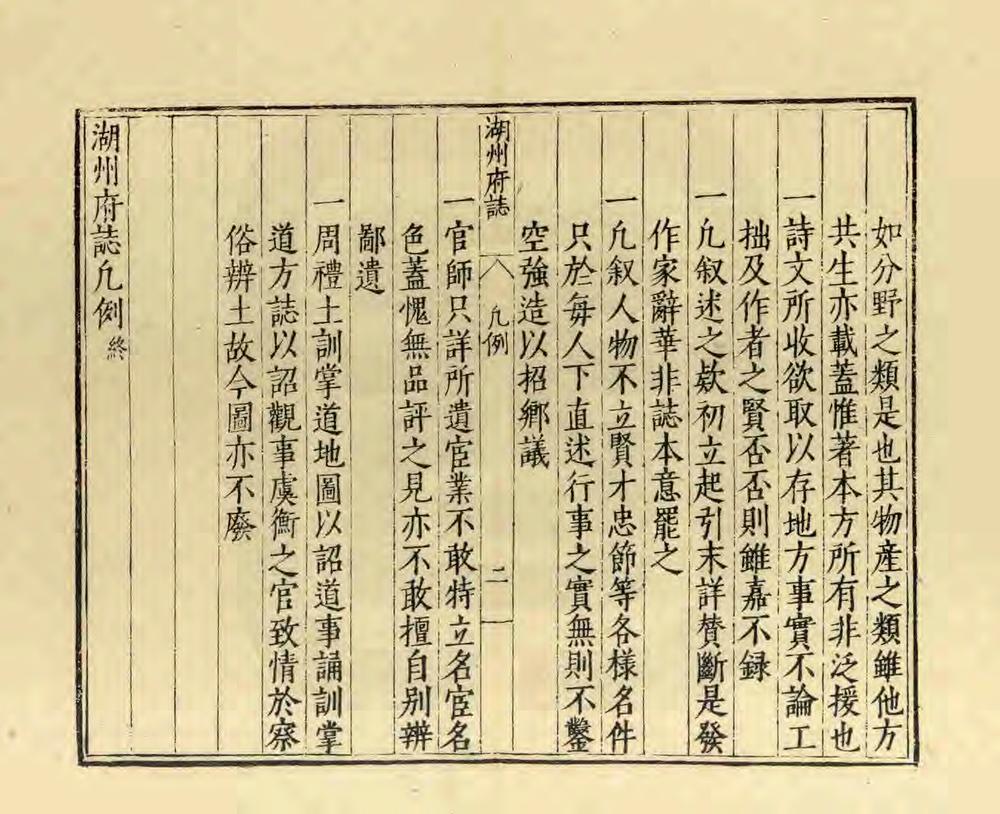 如分野之類是也其物產之類雖他方
共生亦載蓋惟著本方所有非泛援也
一詩文所收欲取以存地方事實不論工
拙及作者之賢否否則雖嘉不録
一凢叙述之欵初立起引末詳賛斷是發
作家辭華非誌本意罷之
一凢叙人物不立賢才忠節等各樣名件
只於每人下直述行事之實無則不鑿
空強造以招鄉議
湖州府誌 凢例 二
一官師只詳所遺宦業不敢特立名宦名
色蓋愧無品評之見亦不敢擅自别辨
鄙遺
一周禮土訓掌道地圖以詔道事誦訓掌
道方誌以詔觀事虞衡之官致情於察
俗辨土故今圖亦不廢
湖州府誌凢例終